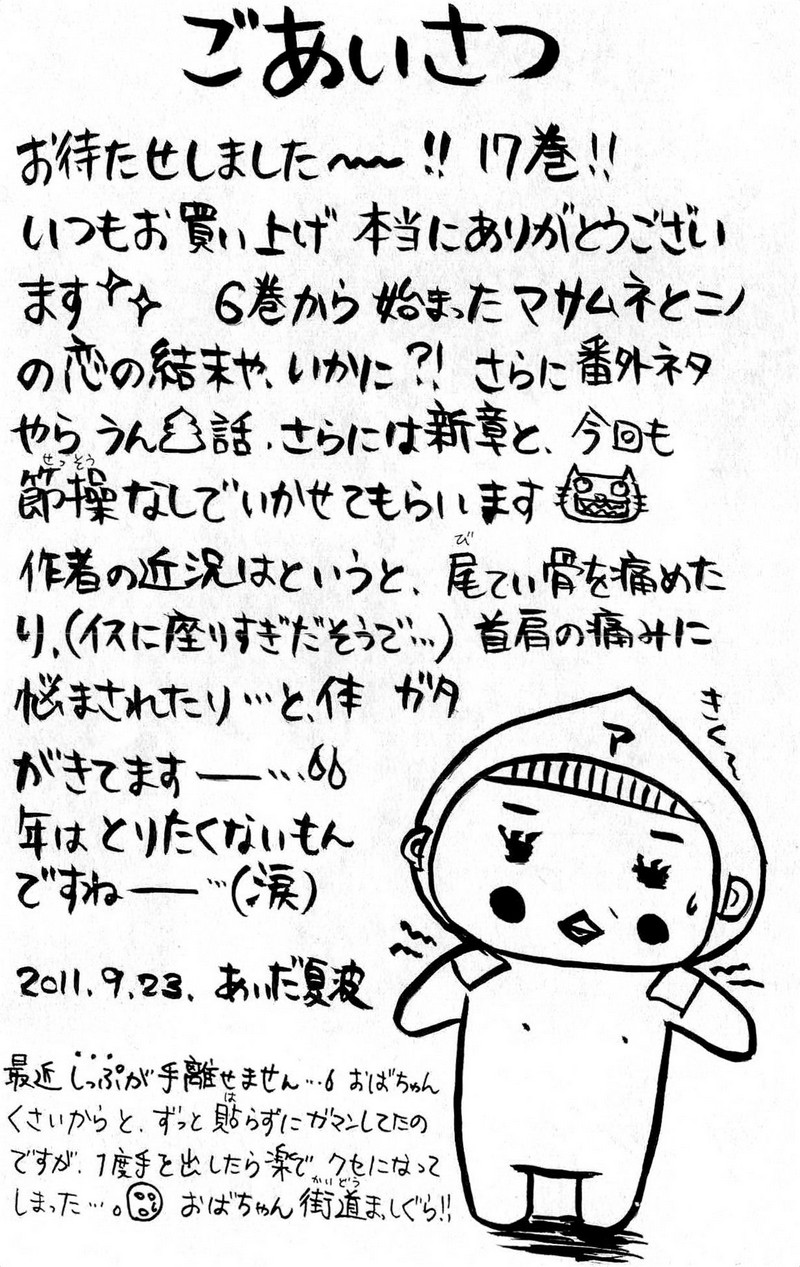 ごあいさつ
お待たせしました〜〜!! 17巻!!
いつもお買い上げ 本当にありがとうござい
ます 6巻から始まったマサムネとニノ
の恋の結末や、いかに?! さらに番外ネタ
やら うん話、さらには新章と、今回も
せっそう
節操なしでいかせてもらいます
び
作者の近況はというと、尾てい骨を痛めた
り、(イスに座りすぎだそうで…) 首肩の痛みに
悩まされたり…と、体 ガタ
がきてます──…
年は とりたくないもん
ですね──…(涙)
2011.9.23. あいだ夏波
きく〜
ア
最近 しっぷが手離せません… おばちゃん
は
くさいからと、ずっと貼らずにガマンしてたの
ですが、1度手を出したら楽で クセになって
かいどう
しまった…。 おばちゃん 街道まっしぐら!!